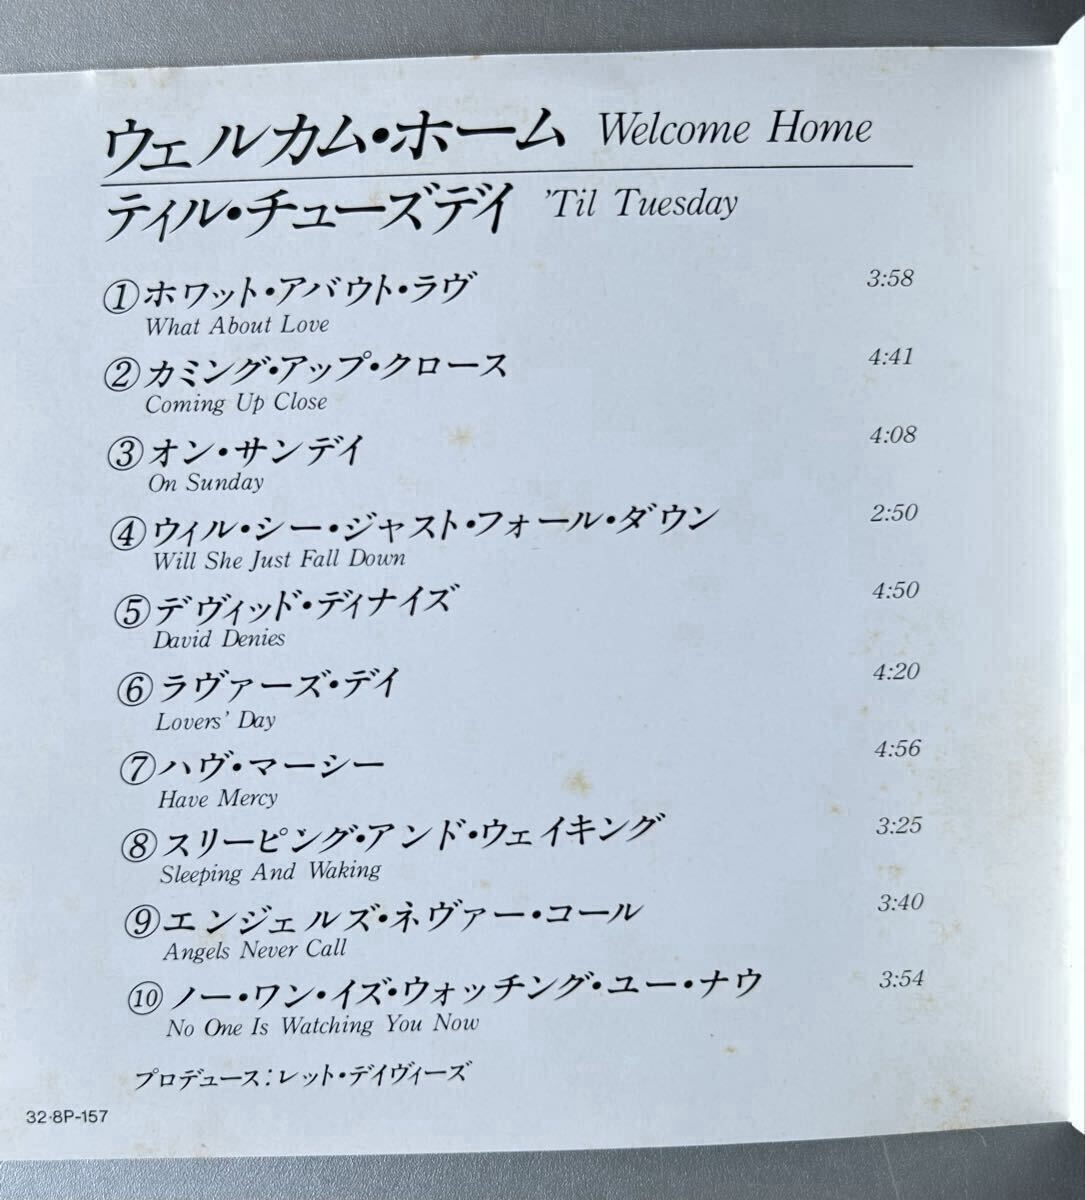 ウェルカム・ホーム Welcome Home
ティル・チューズデイ 'Til Tuesday
①ホワット・アバウト・ラヴ 3:58
What About Love
②カミング・アップ・クロース 4:41
Coming Up Close
③オン・サンデイ 4:08
On Sunday
④ウィル・シー・ジャスト・フォール・ダウン 2:50
Will She Just Fall Down
⑤デヴィッド・ディナイズ 4:50
David Denies
⑥ラヴァーズ・デイ 4:20
Lovers' Day
⑦ハヴ・マーシー 4:56
Have Mercy
⑧スリーピング・アンド・ウェイキング 3:25
Sleeping And Waking
⑨エンジェルズ・ネヴァー・コール 3:40
Angels Never Call
⑩ノー・ワン・イズ・ウォッチング・ユー・ナウ 3:54
No One Is Watching You Now
プロデュース：レット・デイヴィーズ
32・8P-157